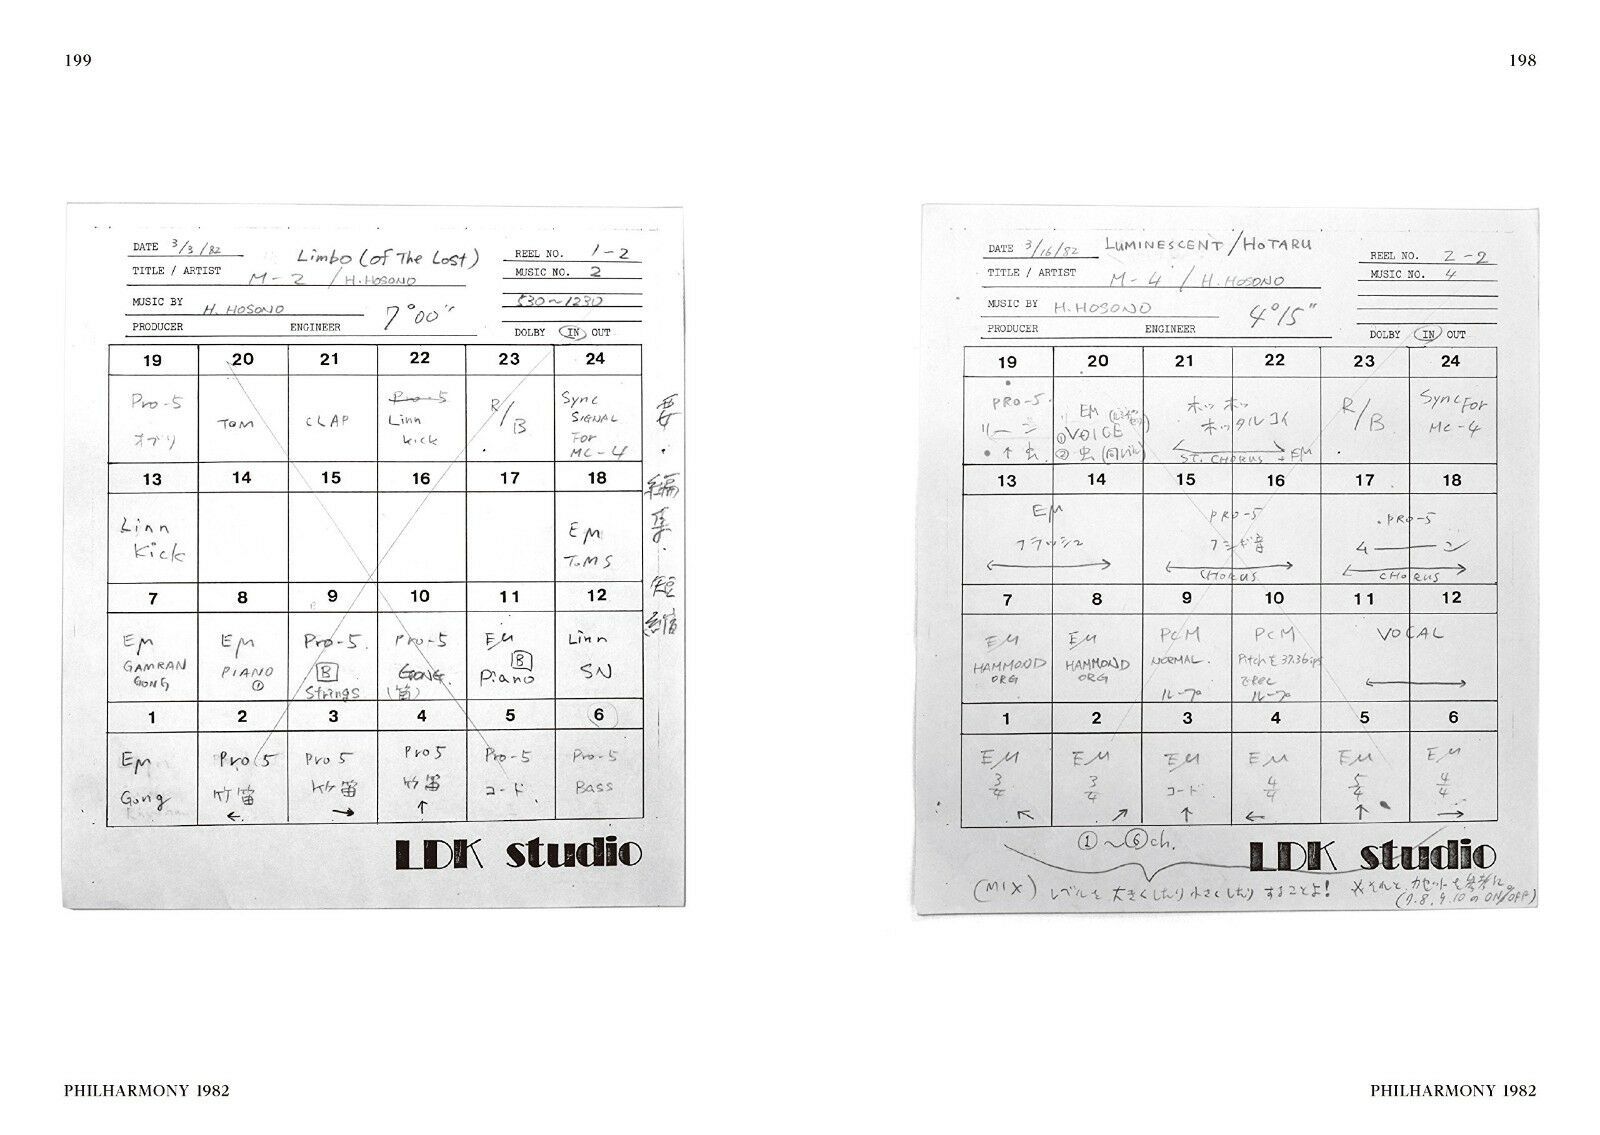 199
DATE 3/3/82
Limbo (of The Lost)
REEL NO. 1-2
TITLE / ARTIST M-2 / H.HOSONO
MUSIC NO. 2
MUSIC BY H. HOSONO
7°00"
530～1230
PRODUCER ENGINEER
DOLBY IN OUT
19 20 21 22 23 24
Pro-5 TOM CLAP Pro-5 R/B Sync
Linn SIGNAL
kick FOR
MC-4
13 14 15 16 17 18
Linn EMU
Kick ToMS
要・編集・短縮
7 8 9 10 11 12
EMU EMU Pro-5. Pro-5 EMU Linn
GAMRAN PIANO B GONG. B SN
GONG ① Strings (笛) Piano
1 2 3 4 5 6
EMU Pro 5 Pro 5 Pro5 Pro-5 Pro-5
Gong 竹笛 竹笛 竹笛 コード. Bass
← → ↑
LDK studio
PHILHARMONY 1982
198
DATE 3/16/82
LUMINESCENT/HOTARU
REEL NO. 2-2
TITLE / ARTIST M-4 / H.HOSONO
MUSIC NO. 4
MUSIC BY H.HOSONO
4°15"
PRODUCER ENGINEER
DOLBY IN OUT
19 20 21 22 23 24
PRO-5. EMU ホッ ホッ R/B Sync For
リーン ①VOICE ホッタルコイ MC-4
↑虫 ②虫 ST. CHORUS + EMU
13 14 15 16 17 18
EMU PRO-5 PRO-5
フラッシュ フシギ音 4 — ン
CHORUS CHORUS
7 8 9 10 11 12
EMU EMU PCM PCM VOCAL
HAMMOND HAMMOND NORMAL. Pitchを37.3ips
ORG ORG ループ でREC
ループ
1 2 3 4 5 6
EMU EMU EMU EMU EMU EMU
3/4 3/4 コード. 4/4 5/4 4/4
↖ ↗ ↑ ← ↑ →
LDK studio
①～⑥ch.
(MIX) レベルを大きくしたり小さくしたりすることよ! ※それと、カセットを参考に。
(7.8.9.10のON/OFF)
PHILHARMONY 1982